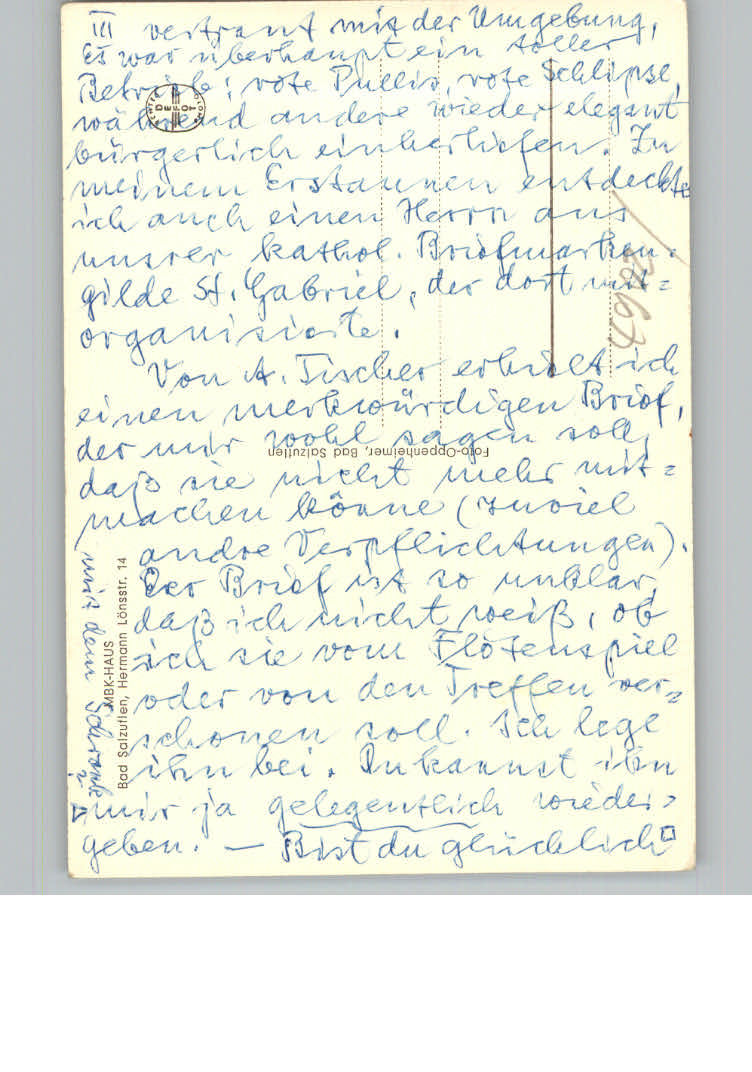 III vertraut mit der Umgebung,
Es war überhaupt ein toller
Betrieb: rote Pullis, rote Schlipse,
während andere wieder elegant
bürgerlich einherliefen. Zu
meinem Erstaunen entdeckte
ich auch einen Herrn aus
unsrer kathol. Briefmarken-
gilde St. Gabriel, der dort mit=
organisierte.
Von A. Tischer erhielt ich
einen merkwürdigen Brief,
der mir wohl sagen soll,
daß sie nicht mehr mit=
machen könne (zuviel
andre Verpflichtungen).
Der Brief ist so unklar,
daß ich nicht weiß, ob
ich sie vom Flötenspiel
oder von den Treffen ver=
schonen soll. Ich lege
ihn bei. Du kannst ihn
mir ja gelegentlich wieder=
geben. — Bist du glücklich
mit dem Schrank?
DEFOT
Foto-Oppenheimer, Bad Salzuflen
MBK-HAUS
Bad Salzuflen, Hermann Lönsstr. 14